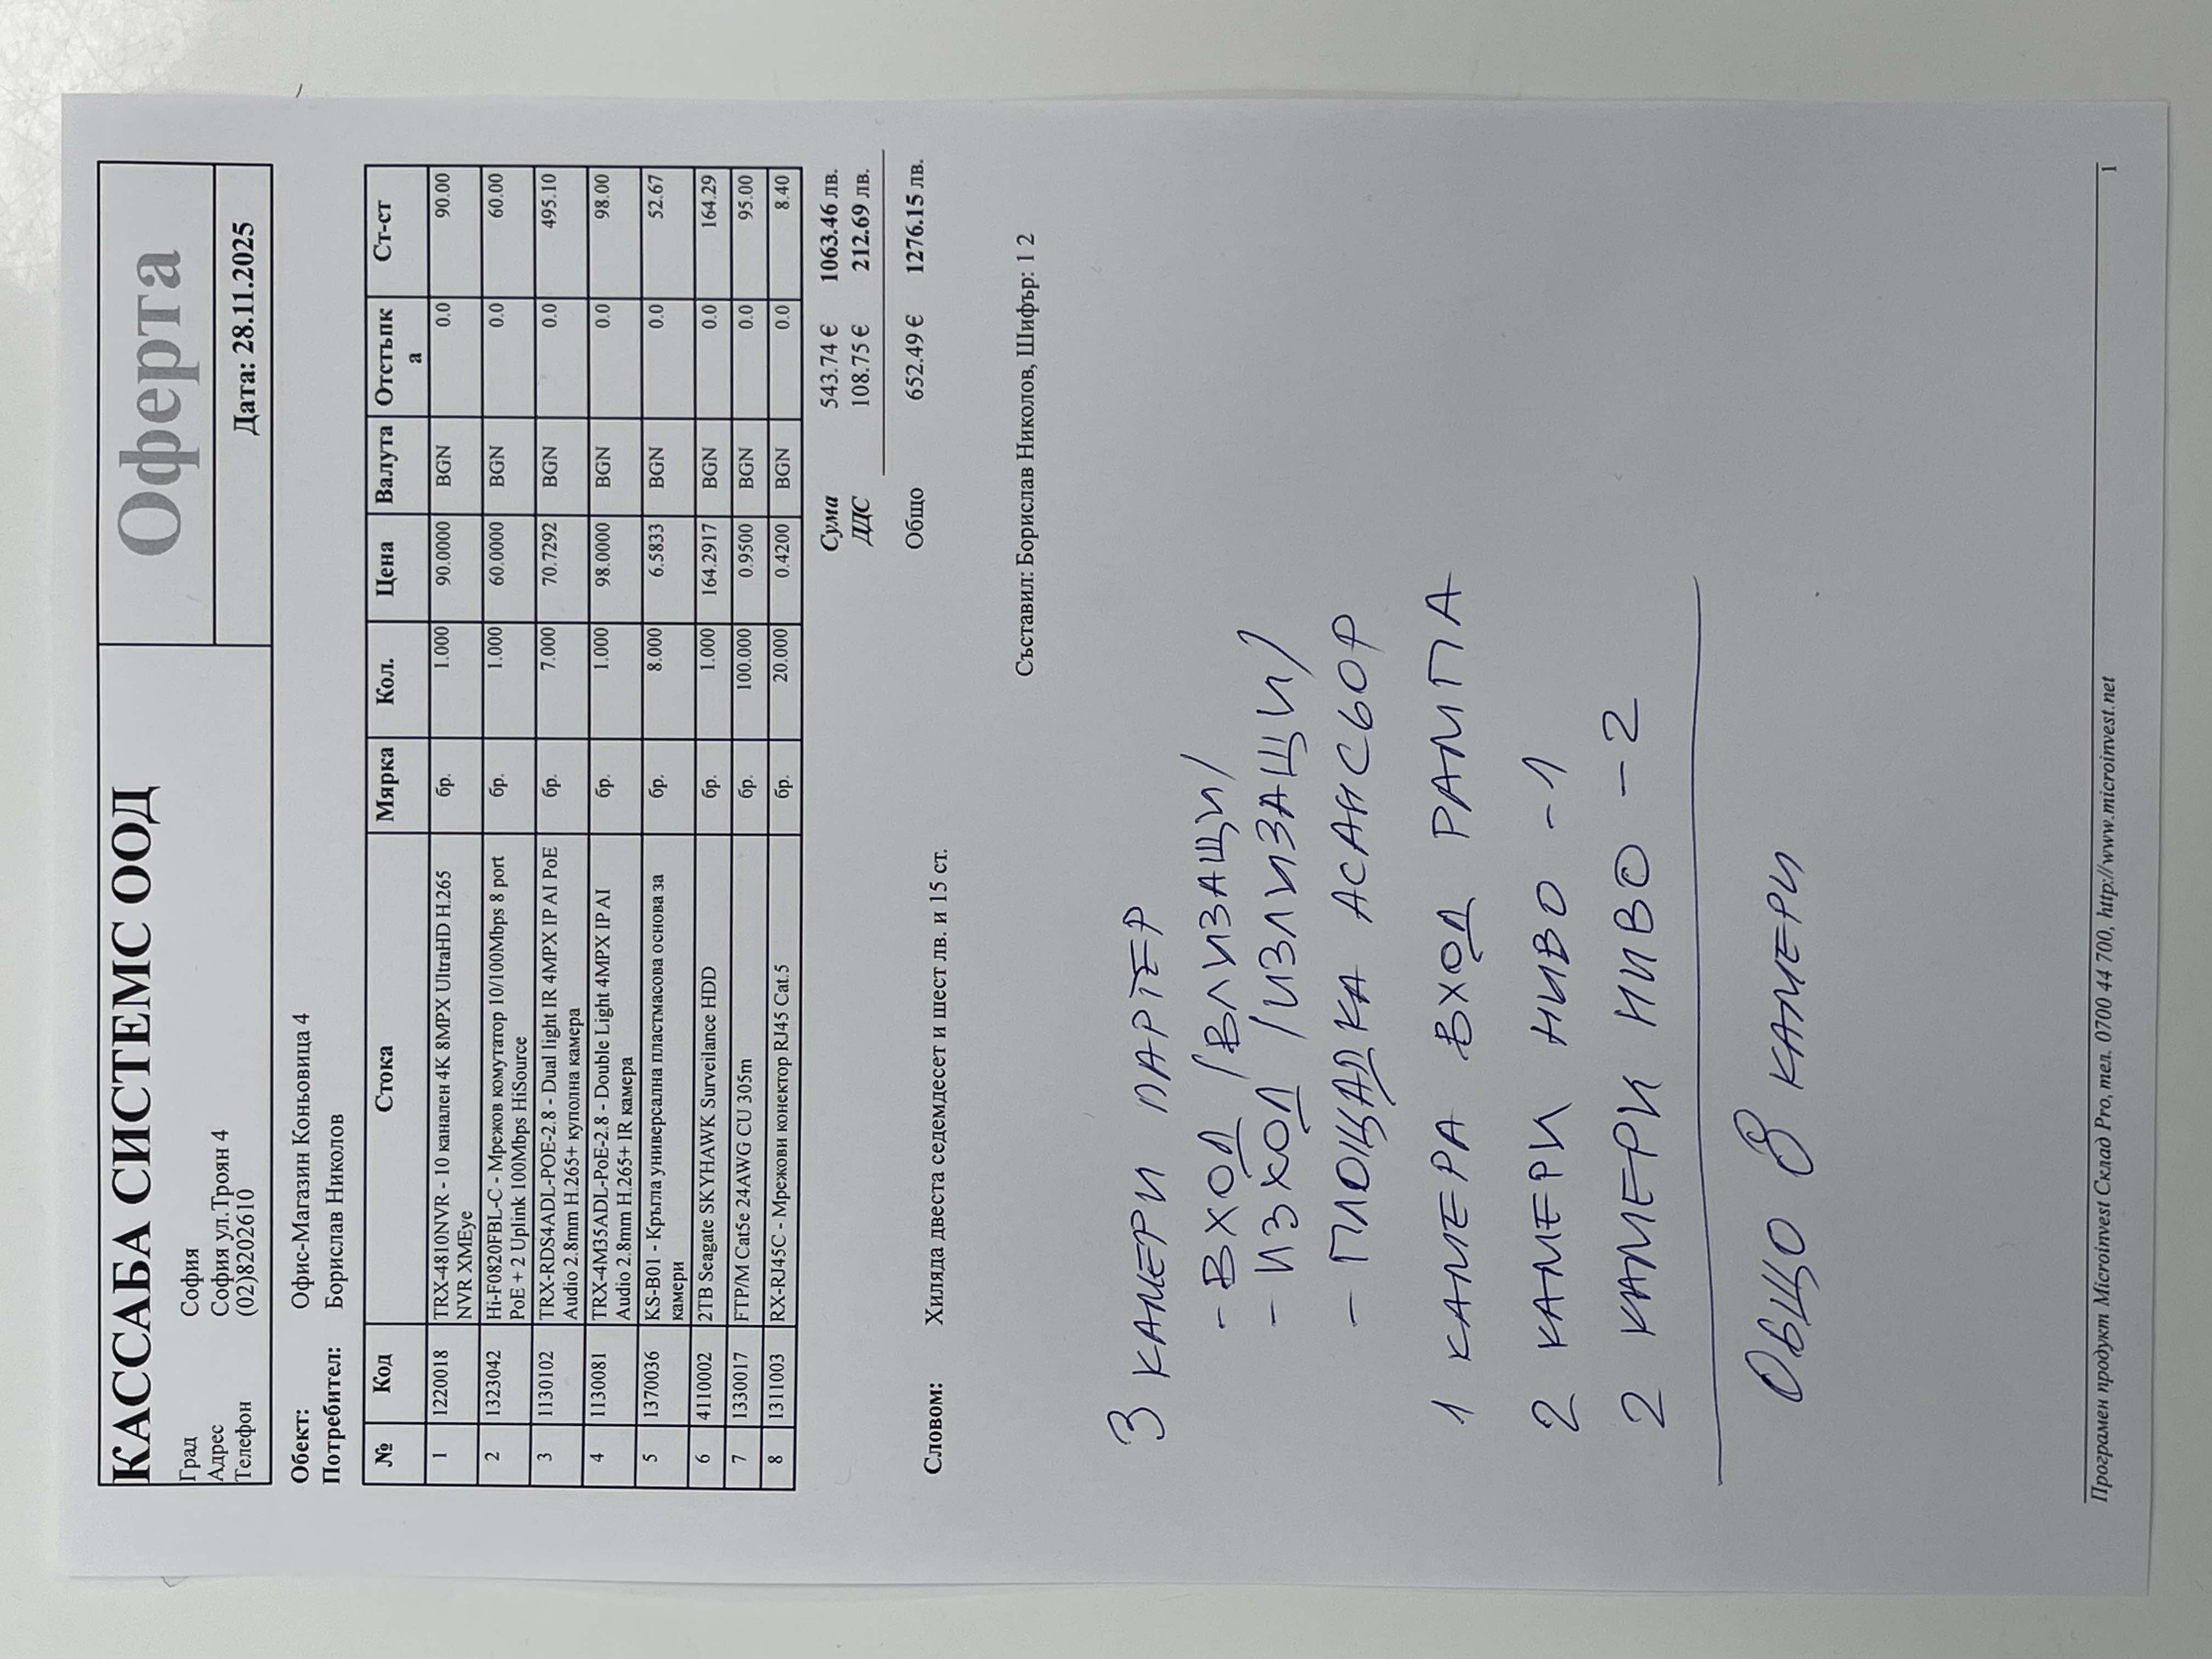 КАССАБА СИСТЕМС ООД
Оферта
Град София
Адрес София ул.Троян 4
Телефон (02)8202610
Дата: 28.11.2025
Обект: Офис-Магазин Коньовица 4
Потребител: Борислав Николов
№ Код Стока Мярка Кол. Цена Валута Отстъпк Ст-ст
а
1 1220018 TRX-4810NVR - 10 канален 4K 8MPX UltraHD H.265 бр. 1.000 90.0000 BGN 0.0 90.00
NVR XMEye
2 1323042 Hi-F0820FBL-C - Мрежов комутатор 10/100Mbps 8 port бр. 1.000 60.0000 BGN 0.0 60.00
PoE + 2 Uplink 100Mbps HiSource
3 1130102 TRX-RDS4ADL-POE-2.8 - Dual light IR 4MPX IP AI PoE бр. 7.000 70.7292 BGN 0.0 495.10
Audio 2.8mm H.265+ куполна камера
4 1130081 TRX-4M35ADL-PoE-2.8 - Double Light 4MPX IP AI бр. 1.000 98.0000 BGN 0.0 98.00
Audio 2.8mm H.265+ IR камера
5 1370036 KS-B01 - Кръгла универсална пластмасова основа за бр. 8.000 6.5833 BGN 0.0 52.67
камери
6 4110002 2TB Seagate SKYHAWK Surveilance HDD бр. 1.000 164.2917 BGN 0.0 164.29
7 1330017 FTP/M Cat5e 24AWG CU 305m бр. 100.000 0.9500 BGN 0.0 95.00
8 1311003 RX-RJ45C - Мрежови конектор RJ45 Cat.5 бр. 20.000 0.4200 BGN 0.0 8.40
Сума 543.74 € 1063.46 лв.
ДДС 108.75 € 212.69 лв.
Общо 652.49 € 1276.15 лв.
Словом: Хиляда двеста седемдесет и шест лв. и 15 ст.
Съставил: Борислав Николов, Шифър: 1 2
3 КАМЕРИ ПАРТЕР
- ВХОД /ВЛИЗАЩИ/
- ИЗХОД /ИЗЛИЗАЩИ/
- ПЛОЩАДКА АСАНСЬОР
1 КАМЕРА ВХОД РАМПА
2 КАМЕРИ НИВО -1
2 КАМЕРИ НИВО -2
ОБЩО 8 КАМЕРИ
Програмен продукт Microinvest Склад Pro, тел. 0700 44 700, http://www.microinvest.net 1